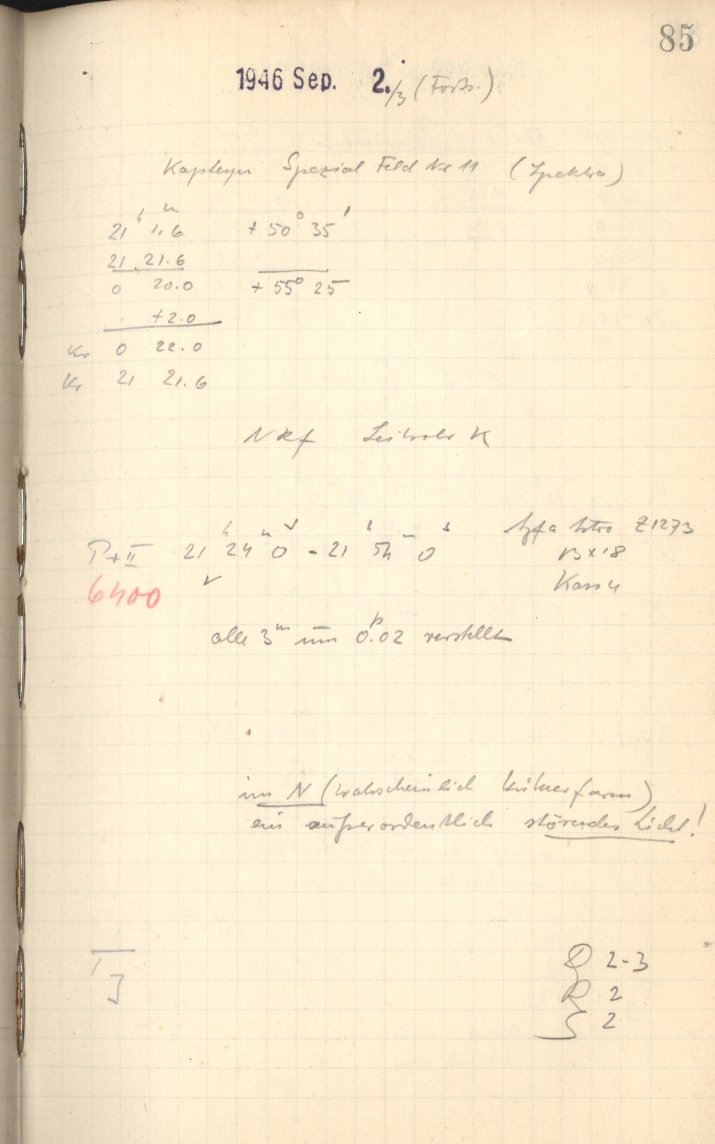 85
1946 Sep. 2./3 (Forts.)
Kapteyn Spezial Feld Nr 11 (Spektra)
21 h 1.6 m + 50° 35'
21 21.6
0 20.0 + 55° 25
+2.0
Kr 0 22.0
Kr 21 21.6
NRf
P+II 21 h 24 m 0 s - 21 h 54 m 0 s Agfa Astro Z1273
13x18
6400 Kass 4
alle 3 m um 0.02 verstellt
im N (wahrscheinlich Hühnerfarm)
ein außerordentlich störendes Licht!
2-3
2
2